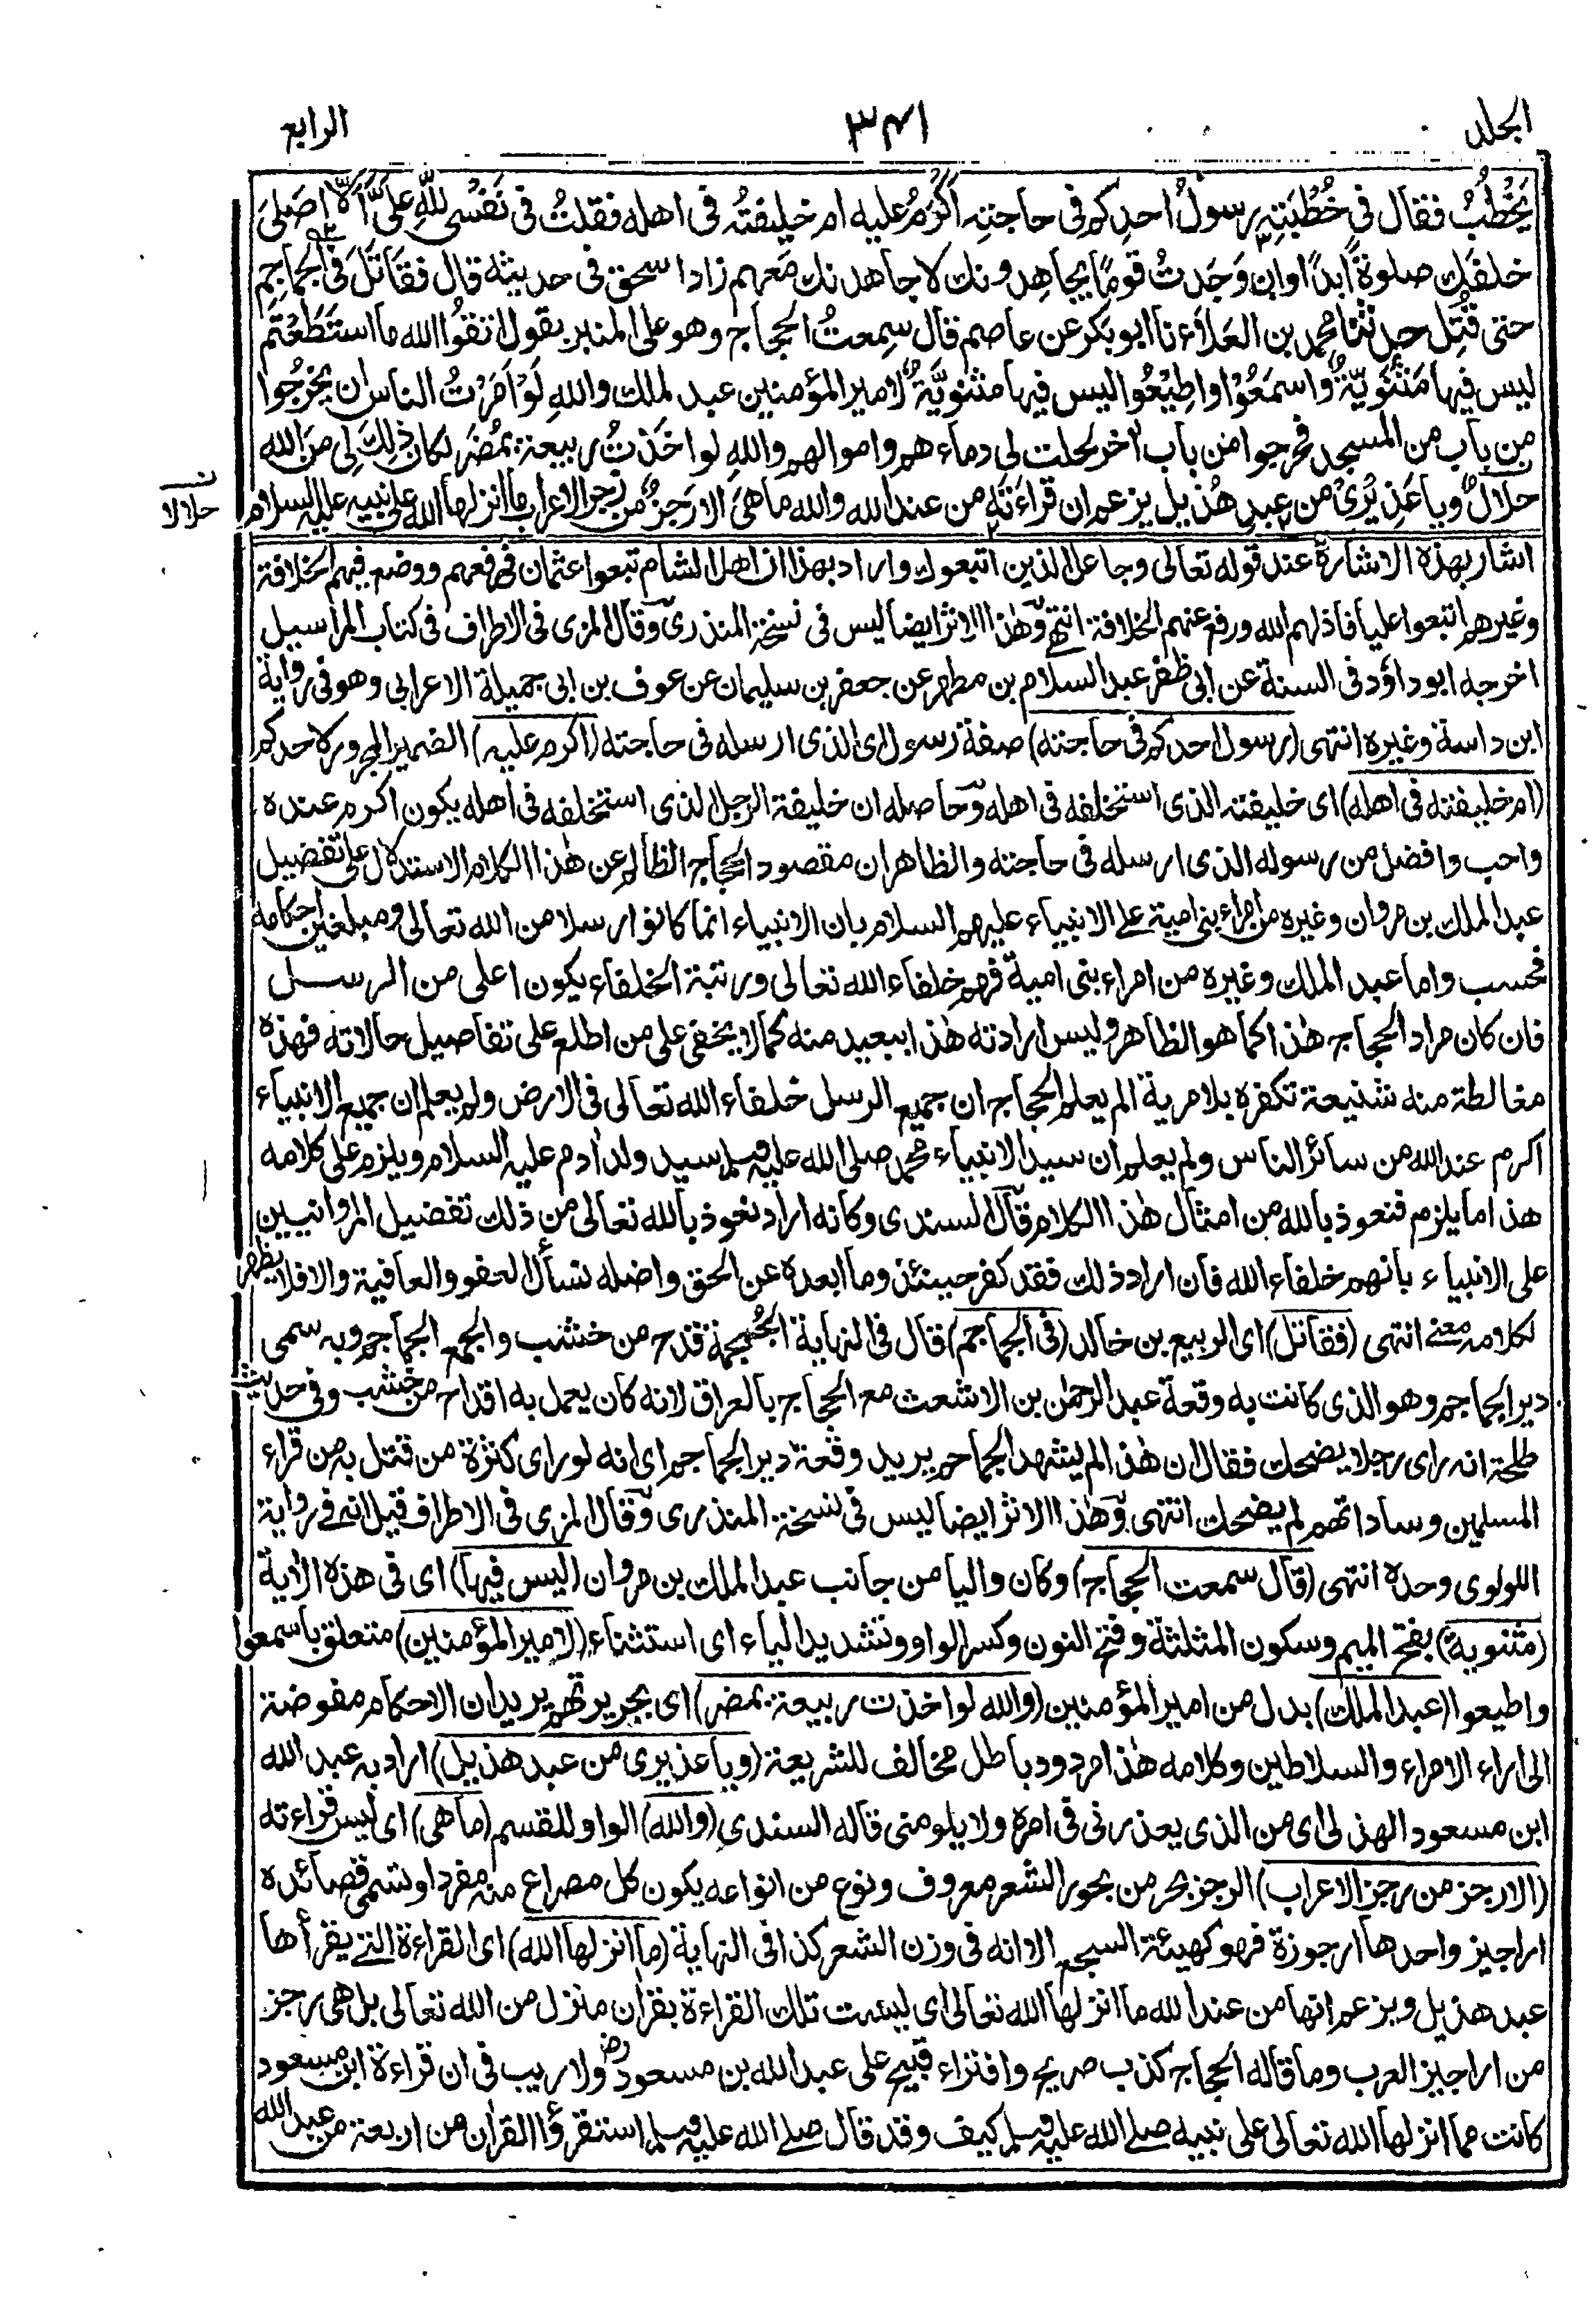 الجلد ٣٤١ الرابع
يَخْطُبُ فقال فى خُطْبَتِهِ رسولُ احدِكم فى حاجتِه اَكْرَمُ عليه ام خليفتُه فى اهله فقلتُ فى نَفْسى لله عَلَىَّ اَلَّا اُصَلِّىَ
خلفَك صلوةً ابدًا وان وَجَدتُ قومًا يجاهِدونك لاجاهدنك مَعهم زاد اسحق فى حديثه قال فقَاتَلَ فى الجماجِم
حتى قُتِل حدثنا محمد بن العَلاء نا ابو بكر عن عاصم قال سمعتُ الحجاج وهو على المنبر يقول اتقُوا الله ما استَطَعْتُم
ليس فيها مَثْنَوِيَّةٌ واسمَعُوا واطِيْعُوا ليس فيها مثنوِيَّةٌ لامير المؤمنين عبد الملك والله لَوْ اَمَرْتُ الناس ان يخرُجُوا
من باب من المسجد فخرجوا من باب اٰخر لحلت لى دماءهم واموالهم والله لو اخَذتُ ربيعة بمُضَر لكان ذٰلِكَ لى مِنَ الله
حلالٌ ويا عَذِيْرِىْ من عبدِ هُذَيل يزعم ان قراءَتَه من عند الله والله ما هىَ الا رَجزٌ من رجز الاعراب ما انزلها الله على نبيه عليه السلام
ن حلالا
اشار بهذه الاشارة عند قوله تعالى وجاعل الذين اتبعوك واراد بهذا ان اهل الشام تبعوا عثمان فرفعهم ووضع فيهم الخلافة
وغيرهم اتبعوا عليا فاذلهم الله ورفع عنهم الخلافة انتهى وهٰذا الاثر ايضا ليس فى نسخة المنذرى وقال المزى فى الاطراف فى كتاب المراسيل
اخرجه ابو داؤد فى السنة عن ابى ظفر عبد السلام بن مطهر عن جعفر بن سليمان عن عوف بن ابى جميلة الاعرابى وهو فى رواية
ابن داسة وغيره انتهى (رسول احدكم فى حاجته) صفة رسول اى الذى ارسله فى حاجته (اكرم عليه) الضمير المجرور لاحدكم
(ام خليفته فى اهله) اى خليفته الذى استخلفه فى اهله وحاصله ان خليفة الرجل الذى استخلفه فى اهله يكون اكرم عنده
واحب وافضل من رسوله الذى ارسله فى حاجته والظاهر ان مقصود الحجاج الظالم عن هٰذا الكلام الاستدلال على تفضيل
عبد الملك بن مروان وغيره من امراء بنى امية على الانبياء عليهم السلام بان الانبياء انما كانوا رسلا من الله تعالى ومبلغين احكامه
فحسب واما عبد الملك وغيره من امراء بنى امية فهم خلفاء الله تعالى ورتبة الخلفاء يكون اعلى من الرسل
فان كان مراد الحجاج هٰذا كما هو الظاهر وليس ارادته هٰذا ببعيد منه كما لا يخفى على من اطلع على تفاصيل حالاته فهذه
مغالطة منه شنيعة تكفره بلا مرية الم يعلم الحجاج ان جميع الرسل خلفاء الله تعالى فى الارض ولم يعلم ان جميع الانبياء
اكرم عند الله من سائر الناس ولم يعلم ان سيد الانبياء محمد صلى الله عليه وسلم سيد ولد اٰدم عليه السلام ويلزم على كلامه
هذا ما يلزم فنعوذ بالله من امثال هٰذا الكلام قال السندى وكانه اراد نعوذ بالله تعالى من ذلك تفضيل المروانيين
على الانبياء بانهم خلفاء الله فان اراد ذلك فقد كفر حينئذ وما ابعده عن الحق واضله نسأل العفو والعافية والا فلا يظهر
لكلامه معنى انتهى (فقاتل) اى الربيع بن خالد (فى الجماجم) قال فى النهاية الجُمجمة قدح من خشب والجمع الجماجم وبه سمى
دير الجماجم وهو الذى كانت به وقعة عبد الرحمٰن بن الاشعث مع الحجاج بالعراق لانه كان يعمل به اقداح من خشب وفى حديث
طلحة انه راى رجلا يضحك فقال ان هٰذا لم يشهد الجماجم يريد وقعة دير الجماجم اى انه لو راى كثرة من قتل به من قراء
المسلمين وساداتهم لم يضحك انتهى وهٰذا الاثر ايضا ليس فى نسخة المنذرى وقال المزى فى الاطراف قيل انه فى رواية
اللولوى وحده انتهى (قال سمعت الحجاج) وكان واليا من جانب عبد الملك بن مروان (ليس فيها) اى فى هذه الاٰية
(مثنوية) بفتح الميم وسكون المثلثة وفتح النون وكسر الواو وتشديد الياء اى استثناء (لامير المؤمنين) متعلق باسمعوا
واطيعوا (عبد الملك) بدل من امير المؤمنين (والله لو اخذت ربيعة بمضر) اى بجريرتهم يريد ان الاحكام مفوضة
الى اراء الامراء والسلاطين وكلامه هٰذا مردود باطل مخالف للشريعة (ويا عذيرى من عبد هذيل) اراد به عبد الله
ابن مسعود الهذلى اى من الذى يعذرنى فى امره ولا يلومنى قاله السندى (والله) الواو للقسم (ما هى) اى ليس قراءته
(الا رجز من رجز الاعراب) الرجز بحر من بحور الشعر معروف ونوع من انواعه يكون كل مصراع منه مفردا وتسمى قصائده
اراجيز واحدها ارجوزة فهو كهيئة السجع الا انه فى وزن الشعر كذا فى النهاية (ما انزلها الله) اى القراءة التى يقرأها
عبد هذيل ويزعم انها من عند الله ما انزلها الله تعالى اى ليست تلك القراءة بقراٰن منزل من الله تعالى بل هى رجز
من اراجيز العرب وما قاله الحجاج كذب صريح وافتراء قبيح على عبد الله بن مسعود رض ولا ريب فى ان قراءة ابن مسعود
كانت مما انزلها الله تعالى على نبيه صلى الله عليه وسلم كيف وقد قال صلى الله عليه وسلم استقرؤا القراٰن من اربعة من عبد الله